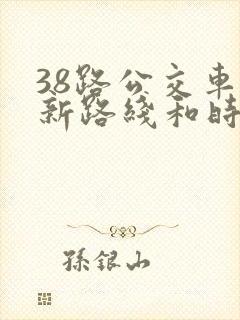 38路公交車
新路綫和時
孫銀山